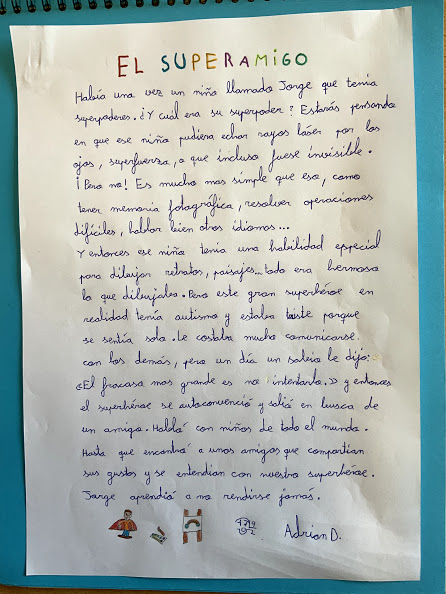 EL SUPERAMIGO
Había una vez un niño llamado Jorge que tenía
superpoderes. ¿Y cuál era su superpoder? Estarás pensando
en que ese niño pudiera echar rayos láser por los
ojos, superfuerza, o que incluso fuese invisible.
¡Pero no! Es mucho mas simple que eso, como
tener memoria fotográfica, resolver operaciones
difíciles, hablar bien otros idiomas...
Y entonces ese niño tenía una habilidad especial
para dibujar retratos, paisajes... todo era hermoso
lo que dibujaba. Pero este gran superhéroe en
realidad tenía autismo y estaba triste porque
se sentía solo. Le costaba mucho comunicarse
con los demás, pero un día un sabio le dijo:
«El fracaso mas grande es no intentarlo.» y entonces
el superhéroe se autoconvenció y salió en busca de
un amigo. Habló con niños de todo el mundo.
Hasta que encontró a unos amigos que compartían
sus gustos y se entendían con nuestro superhéroe.
Jorge aprendió a no rendirse jamás.
Adrian D.